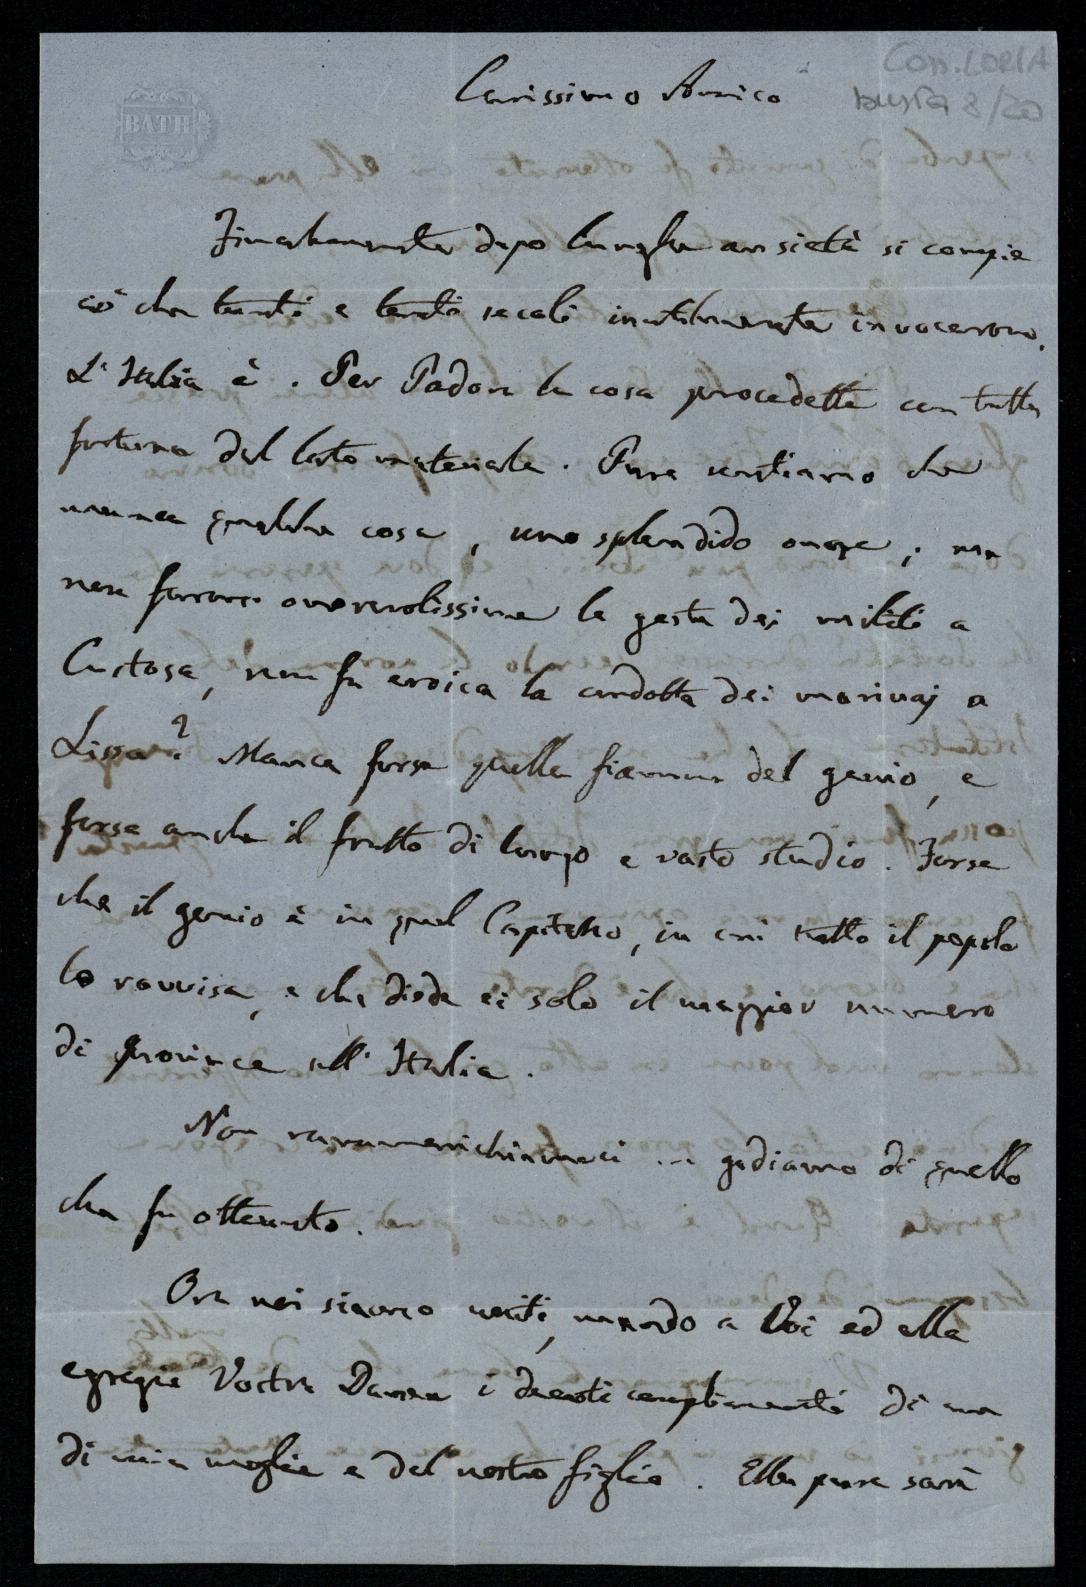 Con. LORIA
busta 8/20
BATH
Carissimo Amico
Finalmente dopo lunghe ansietà si compie
ciò che tanti e tanti secoli inutilmente invocarono.
L'Italia è. Per Padova la cosa procedette con tutta
fortuna dal lato materiale. Pure sentiamo che
manca qualche cosa, uno splendido onore; ma
non furono onorevolissime le gesta dei militi a
Custosa, non fu eroica la condotta dei marinaj a
Lissa? Manca forse quella fiamma del genio, e
forse anche il frutto di lungo e vasto studio. Forse
che il genio è in quel Capitano, in cui tutto il popolo
lo ravvisa, e che diede ei solo il maggior numero
di province all'Italia.
Non rammarichiamoci ... godiamo di quello
che fu ottenuto.
Ora noi siamo uniti, mando a Voi ed alla
egregia Vostra Dama i devoti complimenti di me
di mia moglie e del nostro figlio. Ella pure sarà